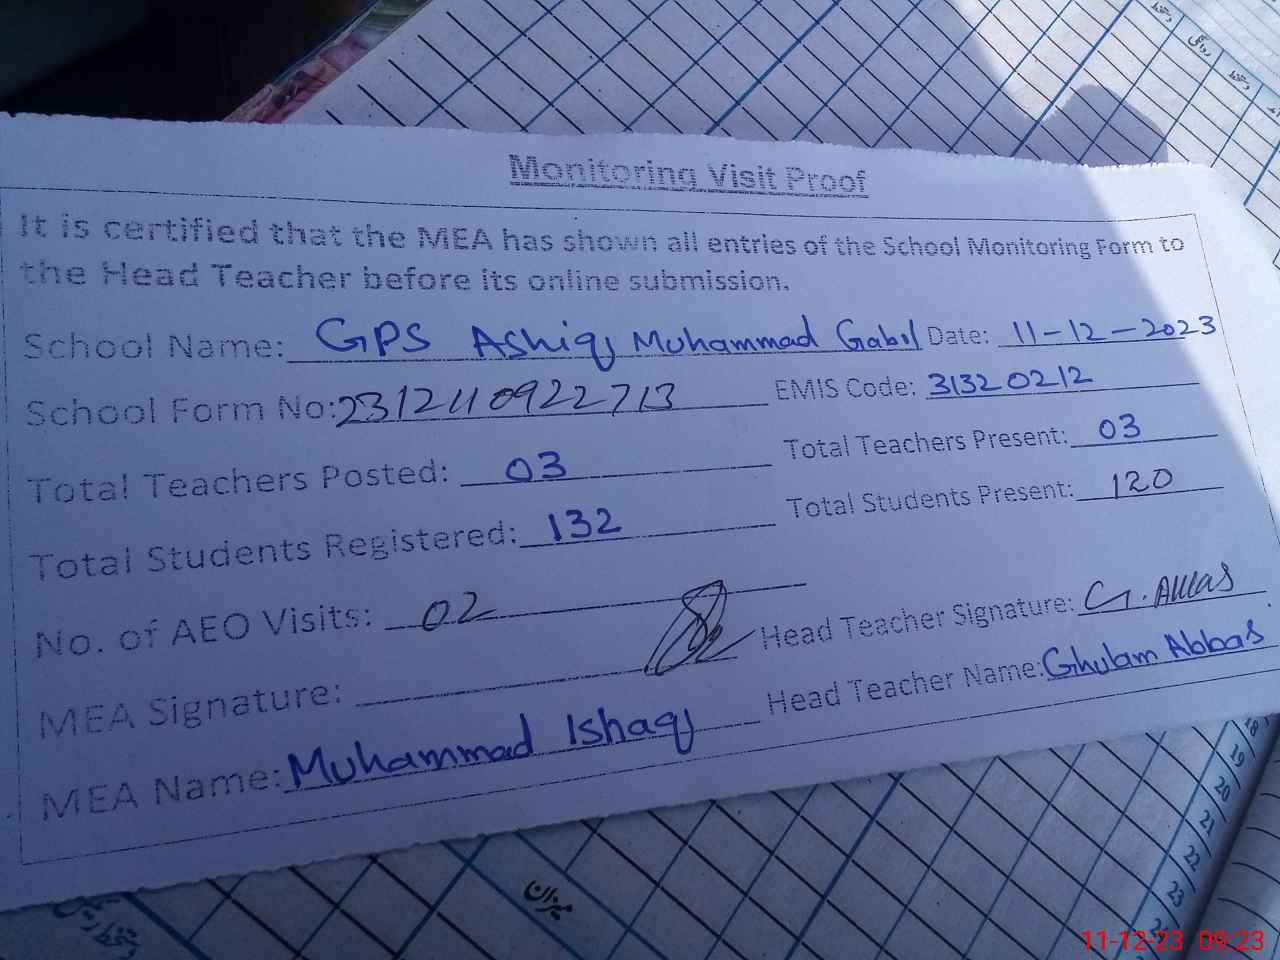 وتخط
روانگی
وتخط
Monitoring Visit Proof
It is certified that the MEA has shown all entries of the School Monitoring Form to
the Head Teacher before its online submission.
School Name: GPS Ashiq Muhammad Gabol Date: 11-12-2023
School Form No: 2312110922713 EMIS Code: 31320212
Total Teachers Posted: 03 Total Teachers Present: 03
Total Students Registered: 132 Total Students Present: 120
No. of AEO Visits: 02
MEA Signature: Head Teacher Signature: G. Abbas
MEA Name: Muhammad Ishaq Head Teacher Name: Ghulam Abbas
18
19
20
21
22
23
میزان
11-12-23 09:23